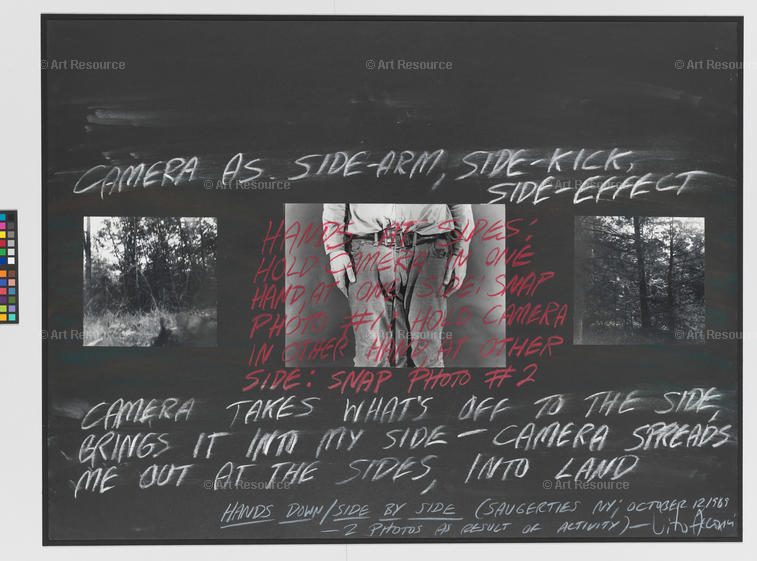 CAMERA AS SIDE-ARM, SIDE-KICK,
SIDE-EFFECT
HANDS AT SIDES:
HOLD CAMERA IN ONE
HAND, AT ONE SIDE: SNAP
PHOTO #1. HOLD CAMERA
IN OTHER HAND AT OTHER
SIDE: SNAP PHOTO #2
CAMERA TAKES WHAT'S OFF TO THE SIDE,
BRINGS IT INTO MY SIDE — CAMERA SPREADS
ME OUT AT THE SIDES, INTO LAND
HANDS DOWN/SIDE BY SIDE (SAUGERTIES NY; OCTOBER 12, 1969
— 2 PHOTOS AS RESULT OF ACTIVITY) — Vito Acconci
© Art Resource
© Art Resource
© Art Resource
© Art Resource
© Art Resource
© Art Resource
© Art Resource
© Art Resource
© Art Resource
© Art Resource